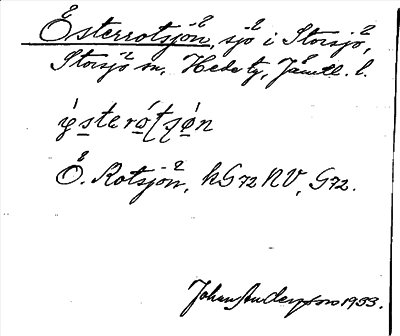 Österrotsjön, sjö i Storsjö,
Storsjö sn, Hede tg, Jämtl. l.
ýsterót̯ʂǿn
Ö. Rotsjön, hG72NV, G72.
Johan Andersson 1933.